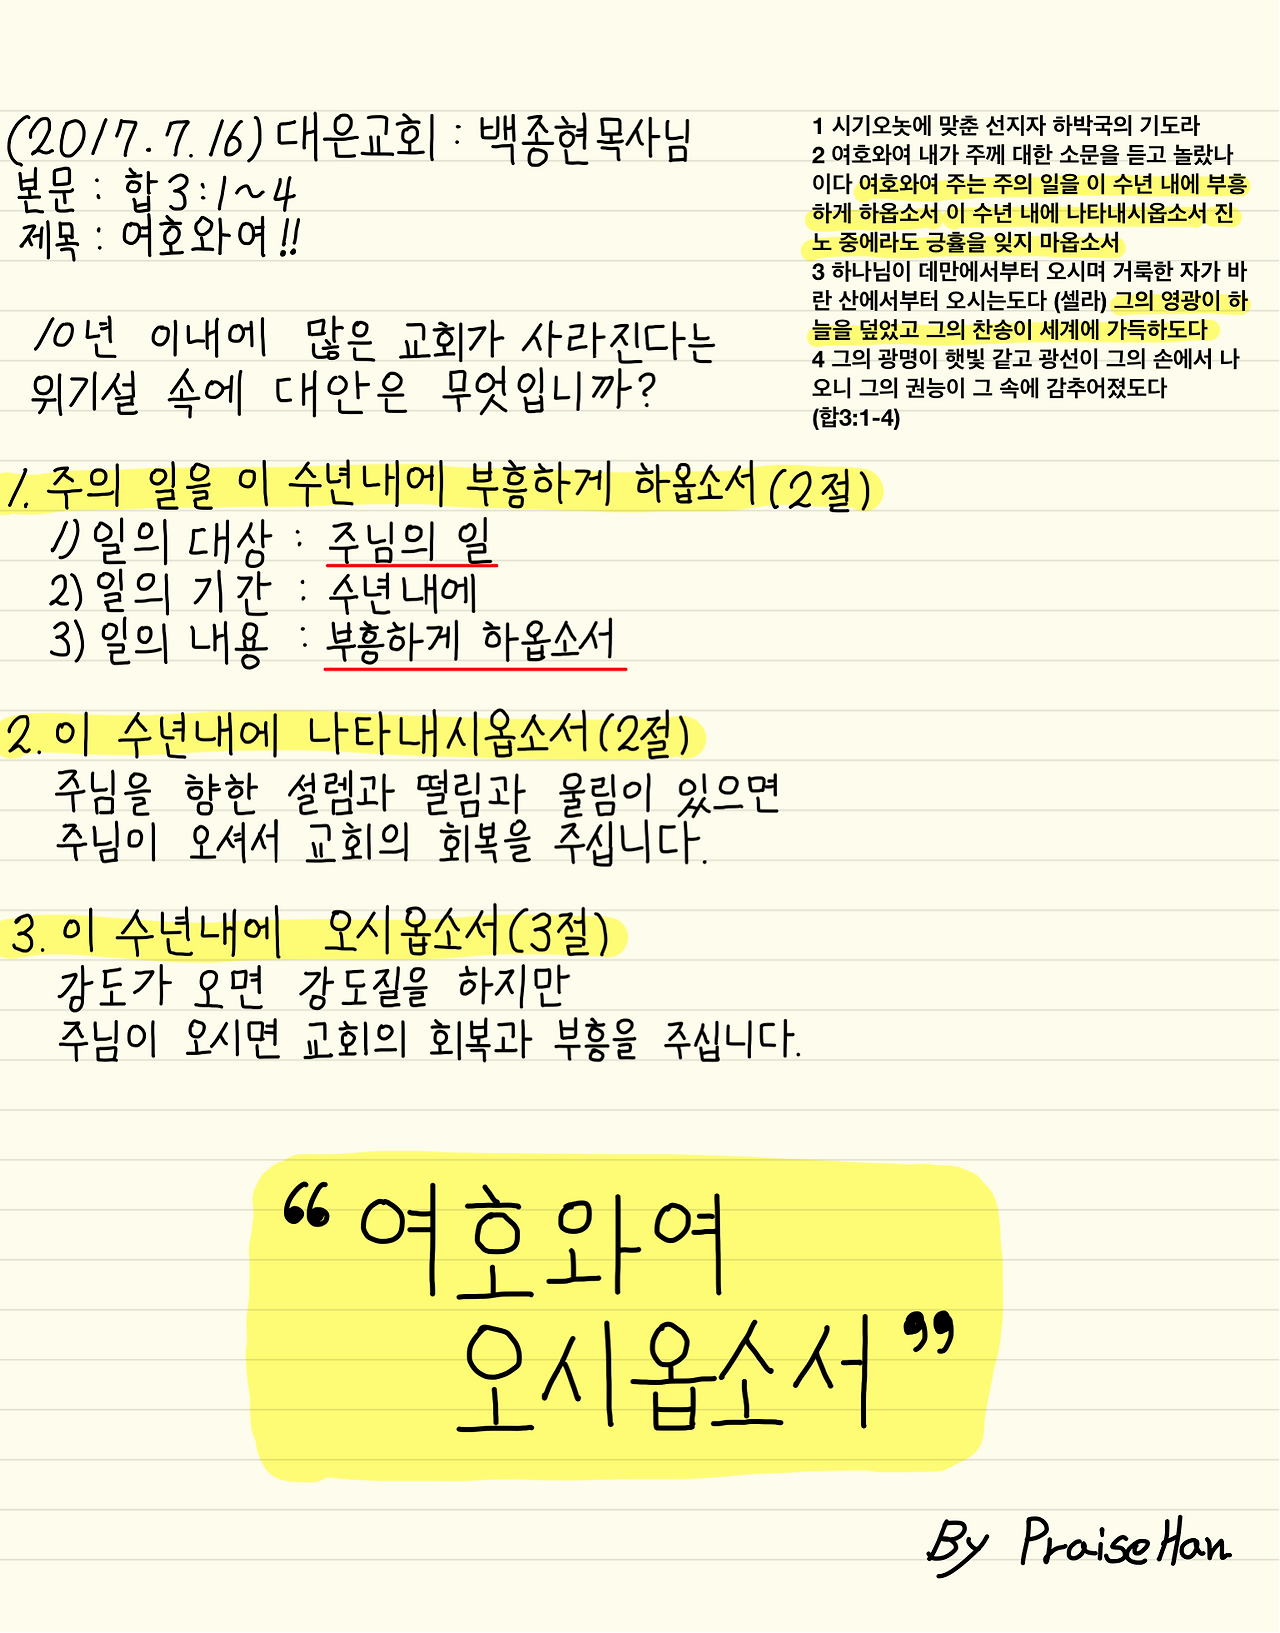 (2017.7.16) 대은교회 : 백종현목사님
본문 : 합3:1~4
제목 : 여호와여!!
1 시기오놋에 맞춘 선지자 하박국의 기도라
2 여호와여 내가 주께 대한 소문을 듣고 놀랐나
이다 여호와여 주는 주의 일을 이 수년 내에 부흥
하게 하옵소서 이 수년 내에 나타내시옵소서 진
노 중에라도 긍휼을 잊지 마옵소서
3 하나님이 데만에서부터 오시며 거룩한 자가 바
란 산에서부터 오시는도다 (셀라) 그의 영광이 하
늘을 덮었고 그의 찬송이 세계에 가득하도다
4 그의 광명이 햇빛 같고 광선이 그의 손에서 나
오니 그의 권능이 그 속에 감추어졌도다
(합3:1-4)
10년 이내에 많은 교회가 사라진다는
위기설 속에 대안은 무엇입니까?
1. 주의 일을 이 수년내에 부흥하게 하옵소서(2절)
1) 일의 대상 : 주님의 일
2) 일의 기간 : 수년내에
3) 일의 내용 : 부흥하게 하옵소서
2. 이 수년내에 나타내시옵소서(2절)
주님을 향한 설렘과 떨림과 울림이 있으면
주님이 오셔서 교회의 회복을 주십니다.
3. 이 수년내에 오시옵소서(3절)
강도가 오면 강도질을 하지만
주님이 오시면 교회의 회복과 부흥을 주십니다.
“여호와여
오시옵소서”
By PraiseHan